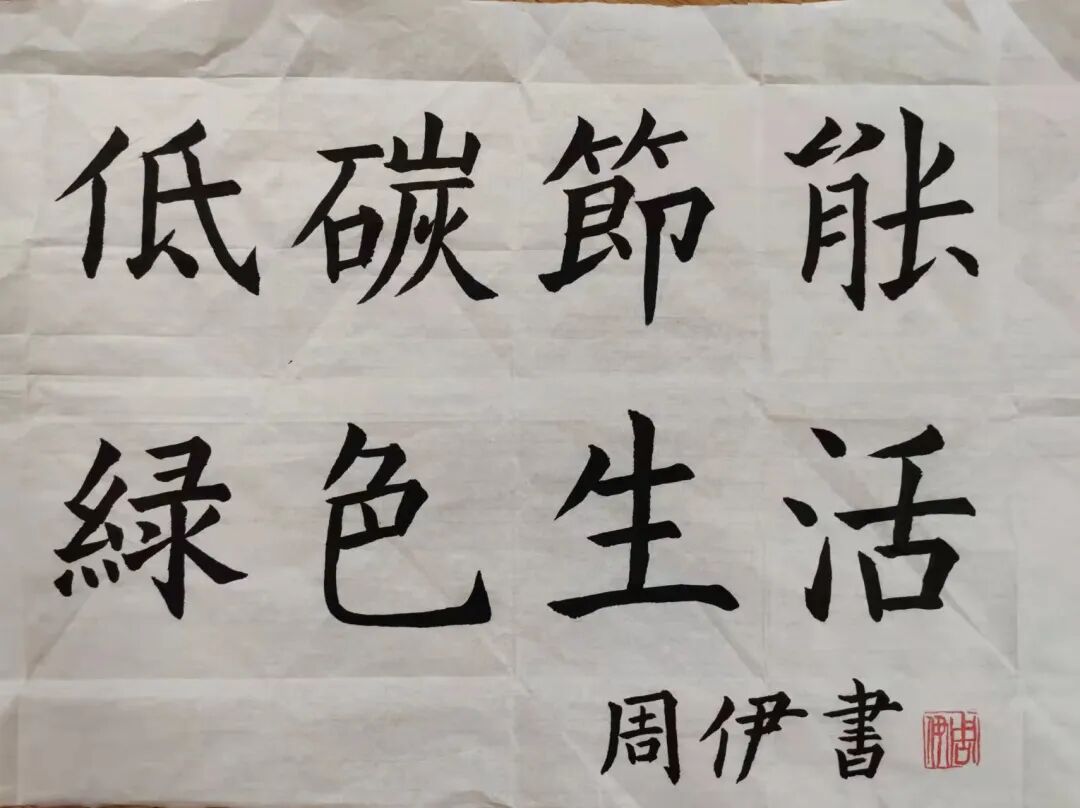 低碳節能
綠色生活
周伊書
周伊